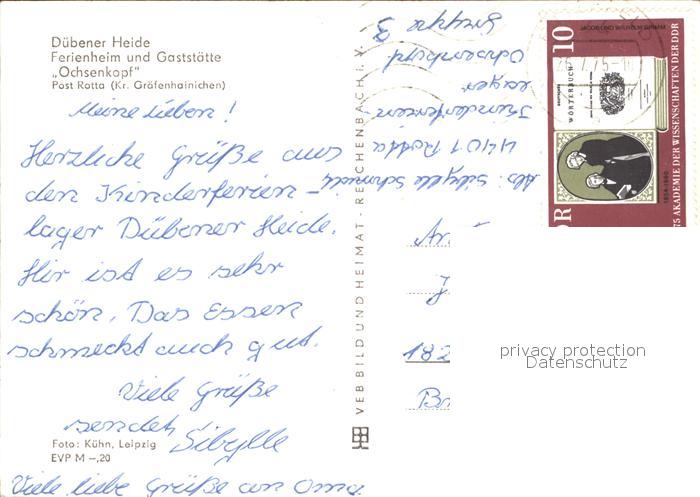 Dübener Heide
Ferienheim und Gaststätte
„Ochsenkopf"
Post Rotta (Kr. Gräfenhainichen)
Meine Lieben!
Herzliche Grüße aus
den Kinderferien-
lager Dübener Heide.
Hir ist es sehr
schön. Das Essen
schmeckt auch gut.
Viele Grüße
sendet
Sibylle
Viele liebe Grüße an Oma
Foto: Kühn, Leipzig
EVP M –,20
VEB BILD UND HEIMAT · REICHENBACH I. V.
Abs: Sibylle Schmidt
4401 Rotta
Kinderferien-
lager
Ochsenkopf
Gruppe 3
An
182
privacy protection
Datenschutz
10
JACOB UND WILHELM GRIMM
DEUTSCHES
WÖRTERBUCH
1854-1960
DR
75 AKADEMIE DER WISSENSCHAFTEN DER DDR